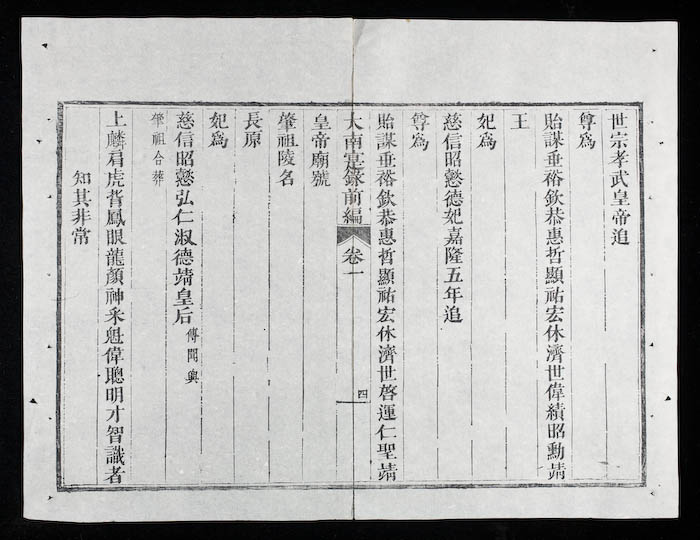 世宗孝武皇帝追
尊爲
貽謀垂裕欽恭惠哲顯祐宏休濟世偉績昭勳靖
王
妃爲
慈信昭懿德妃嘉隆五年追
尊爲
貽謀垂裕欽恭惠哲顯祐宏休濟世啓運仁聖靖
大南寔錄前編 卷一 四
皇帝廟號
肇祖陵名
長原
妃爲
慈信昭懿弘仁淑德靖皇后 傳聞與
肇祖合葬
上麟肩虎脊鳳眼龍顏神采魁偉聰明才智識者
知其非常